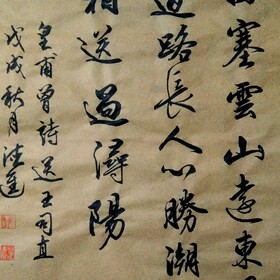 塞雲山遠東
道路長人心勝潮
相送過潯陽
皇甫曾詩送王司直
戊戌秋月